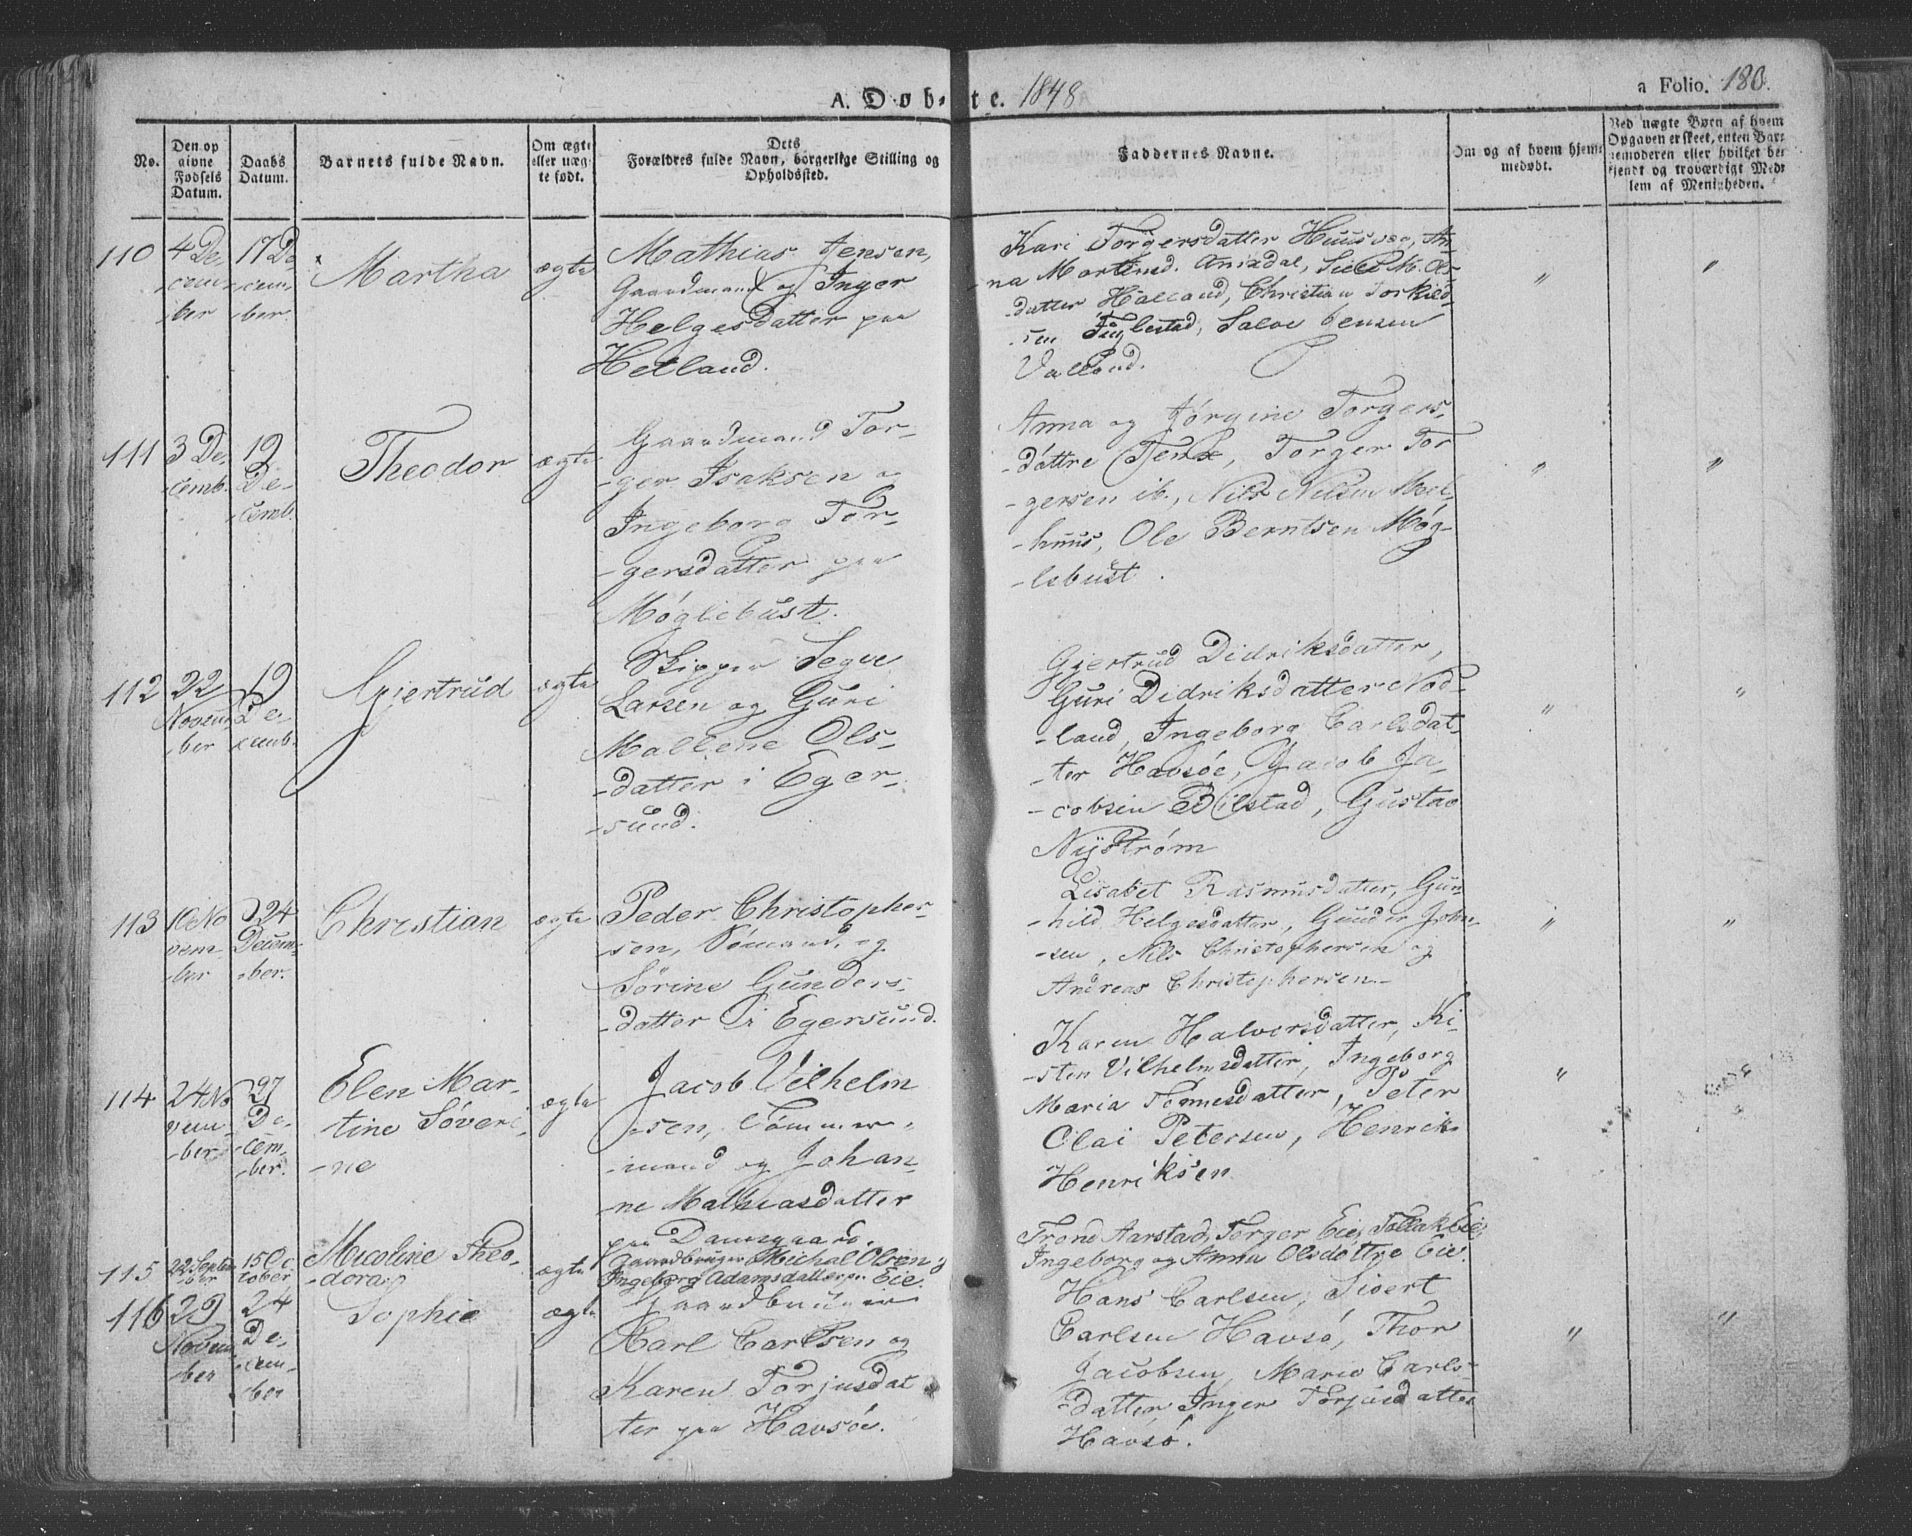 A. Døbte. 1848
a Folio. 180.
No.
Den op
givne
Fødsels
Datum.
Daabs
Datum.
Barnets fulde Navn.
Om ægte
eller uæg-
te født.
Dets
Forældres fulde Navn, borgerlige Stilling og
Opholdssted.
Faddernes Navne.
Om og af hvem hjem-
medøbt.
Ved uægte Børn af hvem
Opgaven er skeet, enten Bar-
nemoderen eller hvilket be-
kjendt og troværdigt Med-
lem af Menigheden.
110
4 De-
-cem-
-ber
17 De
-cem-
-ber.
Martha
ægte
Mathias Jensen,
Gaardmand og Inger
Helgesdatter paa
Hetland.
Kari Torgersdatter An-
-na Martinsd. M. Ols-
-datter Halland, Christian Torkild-
-sen Salve Jensen
Valland.
"
"
111
3 De-
-cemb.
19
De-
-cemb.
Theodor
ægte
Gaardmand Tor-
-ger Isaksen og
Ingeborg Tor-
-gersdatter paa
Møglebust.
Anna og Jørgine Torgers-
-døttre Torger Tor
-gersen ib., Nils Nilsen
-huus, Ole Berntsen Møg-
-lebust.
"
"
112
22
Novem-
-ber
19
De-
-cemb.
Gjertrud
ægte
Skipper
Larsen og Guri
Mallene Ols-
-datter i Eger-
-sund.
Gjertrud Didriksdatter,
Guri Didriksdatter Nod-
-land, Ingeborg Carlsdat-
-ter Havsøe, Jacob Ja-
-cobsen Bilstad, Gustav
Nystrøm
"
"
113
No
vem
-ber
24
Decem-
-ber.
Christian
ægte
Peder Christopher-
-sen, Sømand, og
Sørine Gunders-
-datter i Egersund.
Lisabet Rasmusdatter, Gun-
-hild Helgesdatter, Gunder John-
-sen, Nils Christophersen og
Andreas Christophersen.
"
"
114
24 No
vem-
-ber
27
De-
-cem-
-ber.
Elen Mar-
tine Søveri-
-ne
ægte
Jacob Vilhelm
-sen, Tømmer-
-mand og Johan-
ne Mathiasdatter
paa Damsgaard.
Karen Halvorsdatter, Ki-
-sten Vilhelmsdatter, Ingeborg
Maria Tønnesdatter, Peter
Olai Petersen, Henrik
Henriksen
"
115
22 Septem-
-ber
15 Oc
tober
Nicoline Theo-
-dora
ægte
Gaardbruger Michal Olsen og
Ingeborg Adamsdatter paa Eie.
Trond Aarstad, Torger Eie, Eie,
Ingeborg og Anna Olsdøttre Eie.
116
29
Novem-
ber
24
De-
-cem-
-ber
Sophie
ægte
Gaardbruger
Carl Carlsen og
Karen Torjusdat
ter paa Havsøe.
Hans Carlsen, Sivert
Carlsen Havsø, Thor
Jacobsen, Maria Carls-
-datter, Inger Torjusdatter
Havsø.
"
"